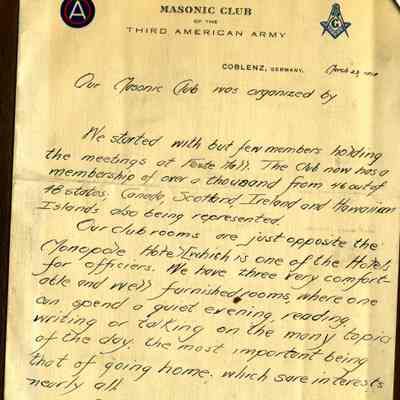 A
G
MASONIC CLUB
OF THE
THIRD AMERICAN ARMY
COBLENZ, GERMANY.
March 23, 1919
Our Masonic Club was organized by
We started with but few members holding
the meetings at Feste Hall. The Club now has a
membership of over a thousand from 46 out of
48 states. Canada, Scotland, Ireland and Hawaiian
Islands also being represented.
Our club rooms are just opposite the
Monopole Hotel which is one of the Hotels
for officiers. We have three very comfort-
able and well furnished rooms, where one
can spend a quiet evening, reading,
writing or talking on the many topics
of the day. the most important being
that of going home, which sure interests
nearly all